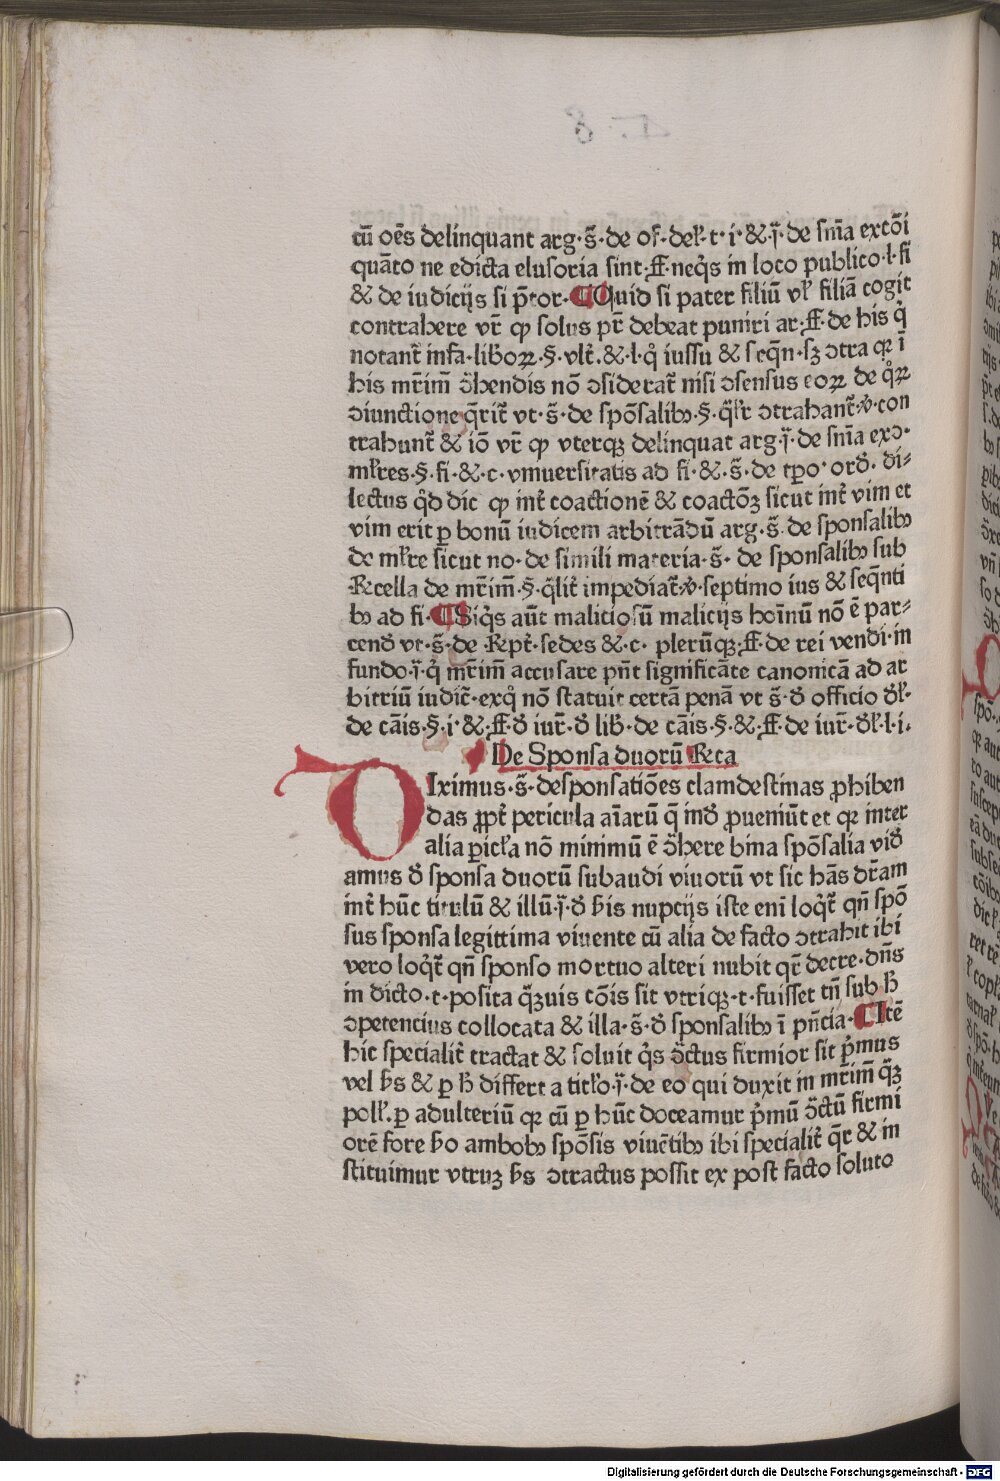 cū oēs delinquant arg·s̄·de of·del·t·i·&·j̄·de sn̄ia extōi
quāto ne edicta elusoria sint·ff·neq̄s in loco publico·l·fi
& de iudicijs si p̄tor·¶Quid si pater filiū vl filiā cogit
contrahere vr̄ ꝙ solus pr̄ debeat puniri ar·ff·de his q̇
notant̄ infa·libоꝝ·§·vlt̄·&·l·q̊ iussu & seq̄n·sꝫ ↄtra qꝛ ī
his mr̄im̄ ↄ̄hendis nō ↄsiderat̄ nisi ↄsensus eoꝝ de q̊ꝝ
ↄiunctione q̄rit̄ vt·s̄·de spōsalibꝫ·§·q̄lr̄ ↄtrahant̄·ꝟ·con
trahunt̄ & iō vr̄ ꝙ vterqꝫ delinquat arg·j̄·de sn̄ia exↄ·
ml̄res·§·fi·&·c·vniuersitatis ad fi·&·s̄·de tpo·ord̄·di⸗
lectus q̊d dic̄ ꝙ int̄ coactionē & coactōꝫ sicut int̄ vim et
vim erit ꝑ bonū iudicem arbitrādū arg·s̄·de sponsalibꝫ
de ml̄re sicut no·de simili materia·s̄·de sponsalibꝫ sub
Recella de mr̄im̄·§·q̄lit̄ impediat̄·ꝟ·septimo ius & seq̄nti
bꝫ ad fi·¶Siq̇s aūt maliciosū malicijs hoīnū nō ē par⸗
cend̄ vt·s̄·de Rept̄·sedes &·c· plerūqꝫ·ff·de rei vendi·in
fundo·j̄·q̇ mr̄im̄ accusare pn̄t significāte canonicā ad ar
bitriū iudic̄·exq̊ nō statuit certā penā vt s̄·d̄ officio d̄l·
de cāis·§·i·&·ff·d̄ iur̄·d̄ lib̄·de cāis·§·&·ff·de iur̄·d̄l·l·i·
De Sponsa duorū Reca
Diximus·s̄·desponsatiōes clamdestinas prohiben
das ꝓpt̄ pericula aīarū q̄ ind̄ proueniūt et qꝛ inter
alia ꝑicl̄a nō minimū ē ↄ̄here bina spōsalia vid̄
amus d̄ sponsa duorū subaudi viuorū vt sic hās dr̄am
int̄ hūc titulū & illū·j̄·d̄ b̄is nuptijs iste enī loq̄t̄ qn̄ spō
sus sponsa legittima viuente cū alia de facto ↄtrahit ibi
vero loq̄t̄ qn̄ sponso mortuo alteri nubit qr̄ decre·dn̄s
in dicto·t·posita q̄ꝫuis cōis sit vtriqꝫ·t·fuisset tn̄ sub h̄
ↄpetencius collocata & illa·s̄·d̄ sponsalibꝫ ī pn̄cia·¶Itē
hic specialit̄ tractat & soluit q̇s ↄ̄ctus firmior sit p̄mus
vel b̄s & ꝑ h̄ differt a titl̄o·j̄·de eo qui duxit in mr̄im̄ q̄ꝫ
poll·ꝑ adulteriū qꝛ cū ꝑ hūc doceamur p̄mū ↄ̄ctū firmi
orē fore b̄o ambobꝫ spōsis viuētibꝫ ibi specialit̄ q̄r & in
stituimur vtruꝫ b̄s ↄtractus possit ex post facto soluto